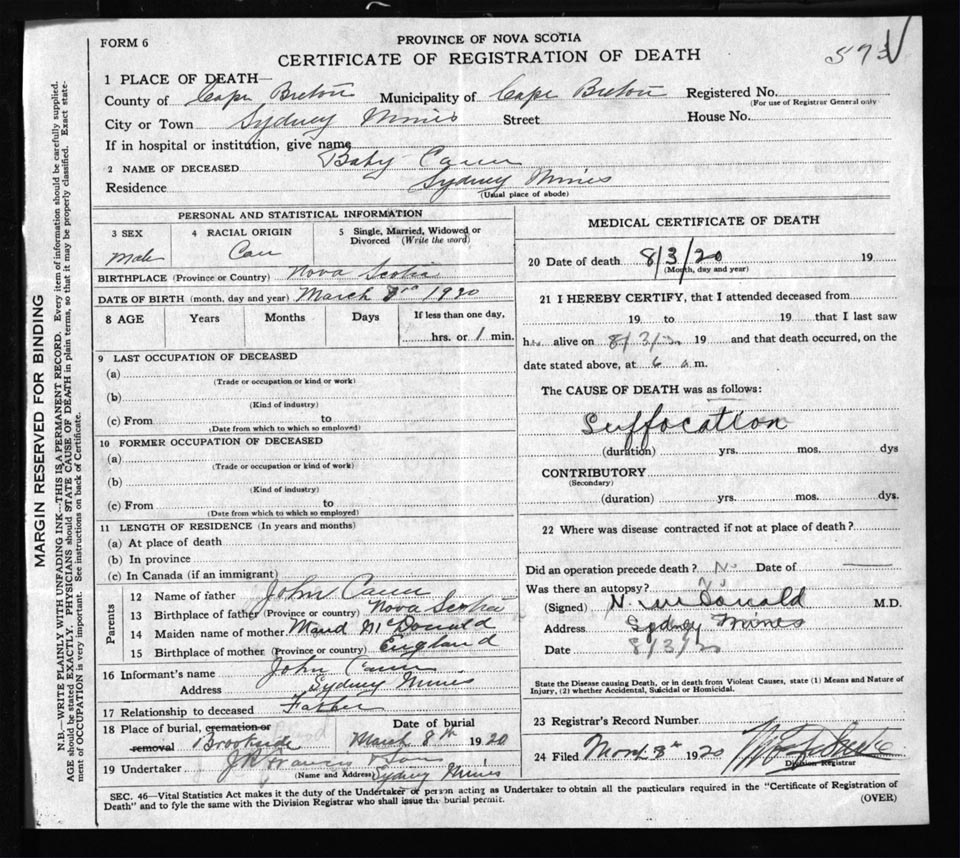 FORM 6
PROVINCE OF NOVA SCOTIA
CERTIFICATE OF REGISTRATION OF DEATH
1 PLACE OF DEATH—
County of Cape Breton Municipality of Cape Breton Registered No.
(For use of Registrar General only
City or Town Sydney Mines Street House No.
If in hospital or institution, give name
2 NAME OF DECEASED Baby
Residence Sydney Mines
(Usual place of abode)
PERSONAL AND STATISTICAL INFORMATION
3 SEX 4 RACIAL ORIGIN 5 Single, Married, Widowed or Divorced (Write the word)
Male
BIRTHPLACE (Province or Country) Nova Scotia
DATE OF BIRTH (month, day and year) March 1920
8 AGE Years Months Days If less than one day,
hrs. or 1 min.
9 LAST OCCUPATION OF DECEASED
(a)
(Trade or occupation or kind or work)
(b)
(Kind of industry)
(c) From to
(Date from which to which so employed)
10 FORMER OCCUPATION OF DECEASED
(a)
(Trade or occupation or kind of work)
(b)
(Kind of industry)
(c) From to
(Date from which to which so employed)
11 LENGTH OF RESIDENCE (In years and months)
(a) At place of death
(b) In province
(c) In Canada (if an immigrant)
Parents
12 Name of father John
13 Birthplace of father (Province or country) Nova Scotia
14 Maiden name of mother Maud McDonald
15 Birthplace of mother (Province or country) England
16 Informant's name John
Address Sydney Mines
17 Relationship to deceased Father
18 Place of burial, cremation or removal Brookside
Date of burial March 8th 1920
19 Undertaker J R Francis & Son
(Name and Address) Sydney Mines
MEDICAL CERTIFICATE OF DEATH
20 Date of death 8/3/20 19
(Month, day and year)
21 I HEREBY CERTIFY, that I attended deceased from
19 to 19 that I last saw
h alive on 8/3/20 19 and that death occurred, on the
date stated above, at 6 a m.
The CAUSE OF DEATH was as follows:
Suffocation
(duration) yrs. mos. dys
CONTRIBUTORY
(Secondary)
(duration) yrs. mos. dys.
22 Where was disease contracted if not at place of death?
Did an operation precede death? No Date of
Was there an autopsy? No
(Signed) N. McDonald M.D.
Address Sydney Mines
Date 8/3/20
State the Disease causing Death, or in death from Violent Causes, state (1) Means and Nature of
Injury, (2) whether Accidental, Suicidal or Homicidal.
23 Registrar's Record Number
24 Filed 1920
Division Registrar
SEC. 46—Vital Statistics Act makes it the duty of the Undertaker or person acting as Undertaker to obtain all the particulars required in the "Certificate of Registration of
Death" and to fyle the same with the Division Registrar who shall issue the burial permit.
(OVER)
MARGIN RESERVED FOR BINDING
N.B.—WRITE PLAINLY WITH UNFADING INK—THIS IS A PERMANENT RECORD. Every item of information should be carefully supplied.
AGE should be stated EXACTLY. PHYSICIANS should STATE CAUSE OF DEATH in plain terms, so that it may be properly classified. Exact state-
ment of OCCUPATION is very important. See instructions on back of Certificate.